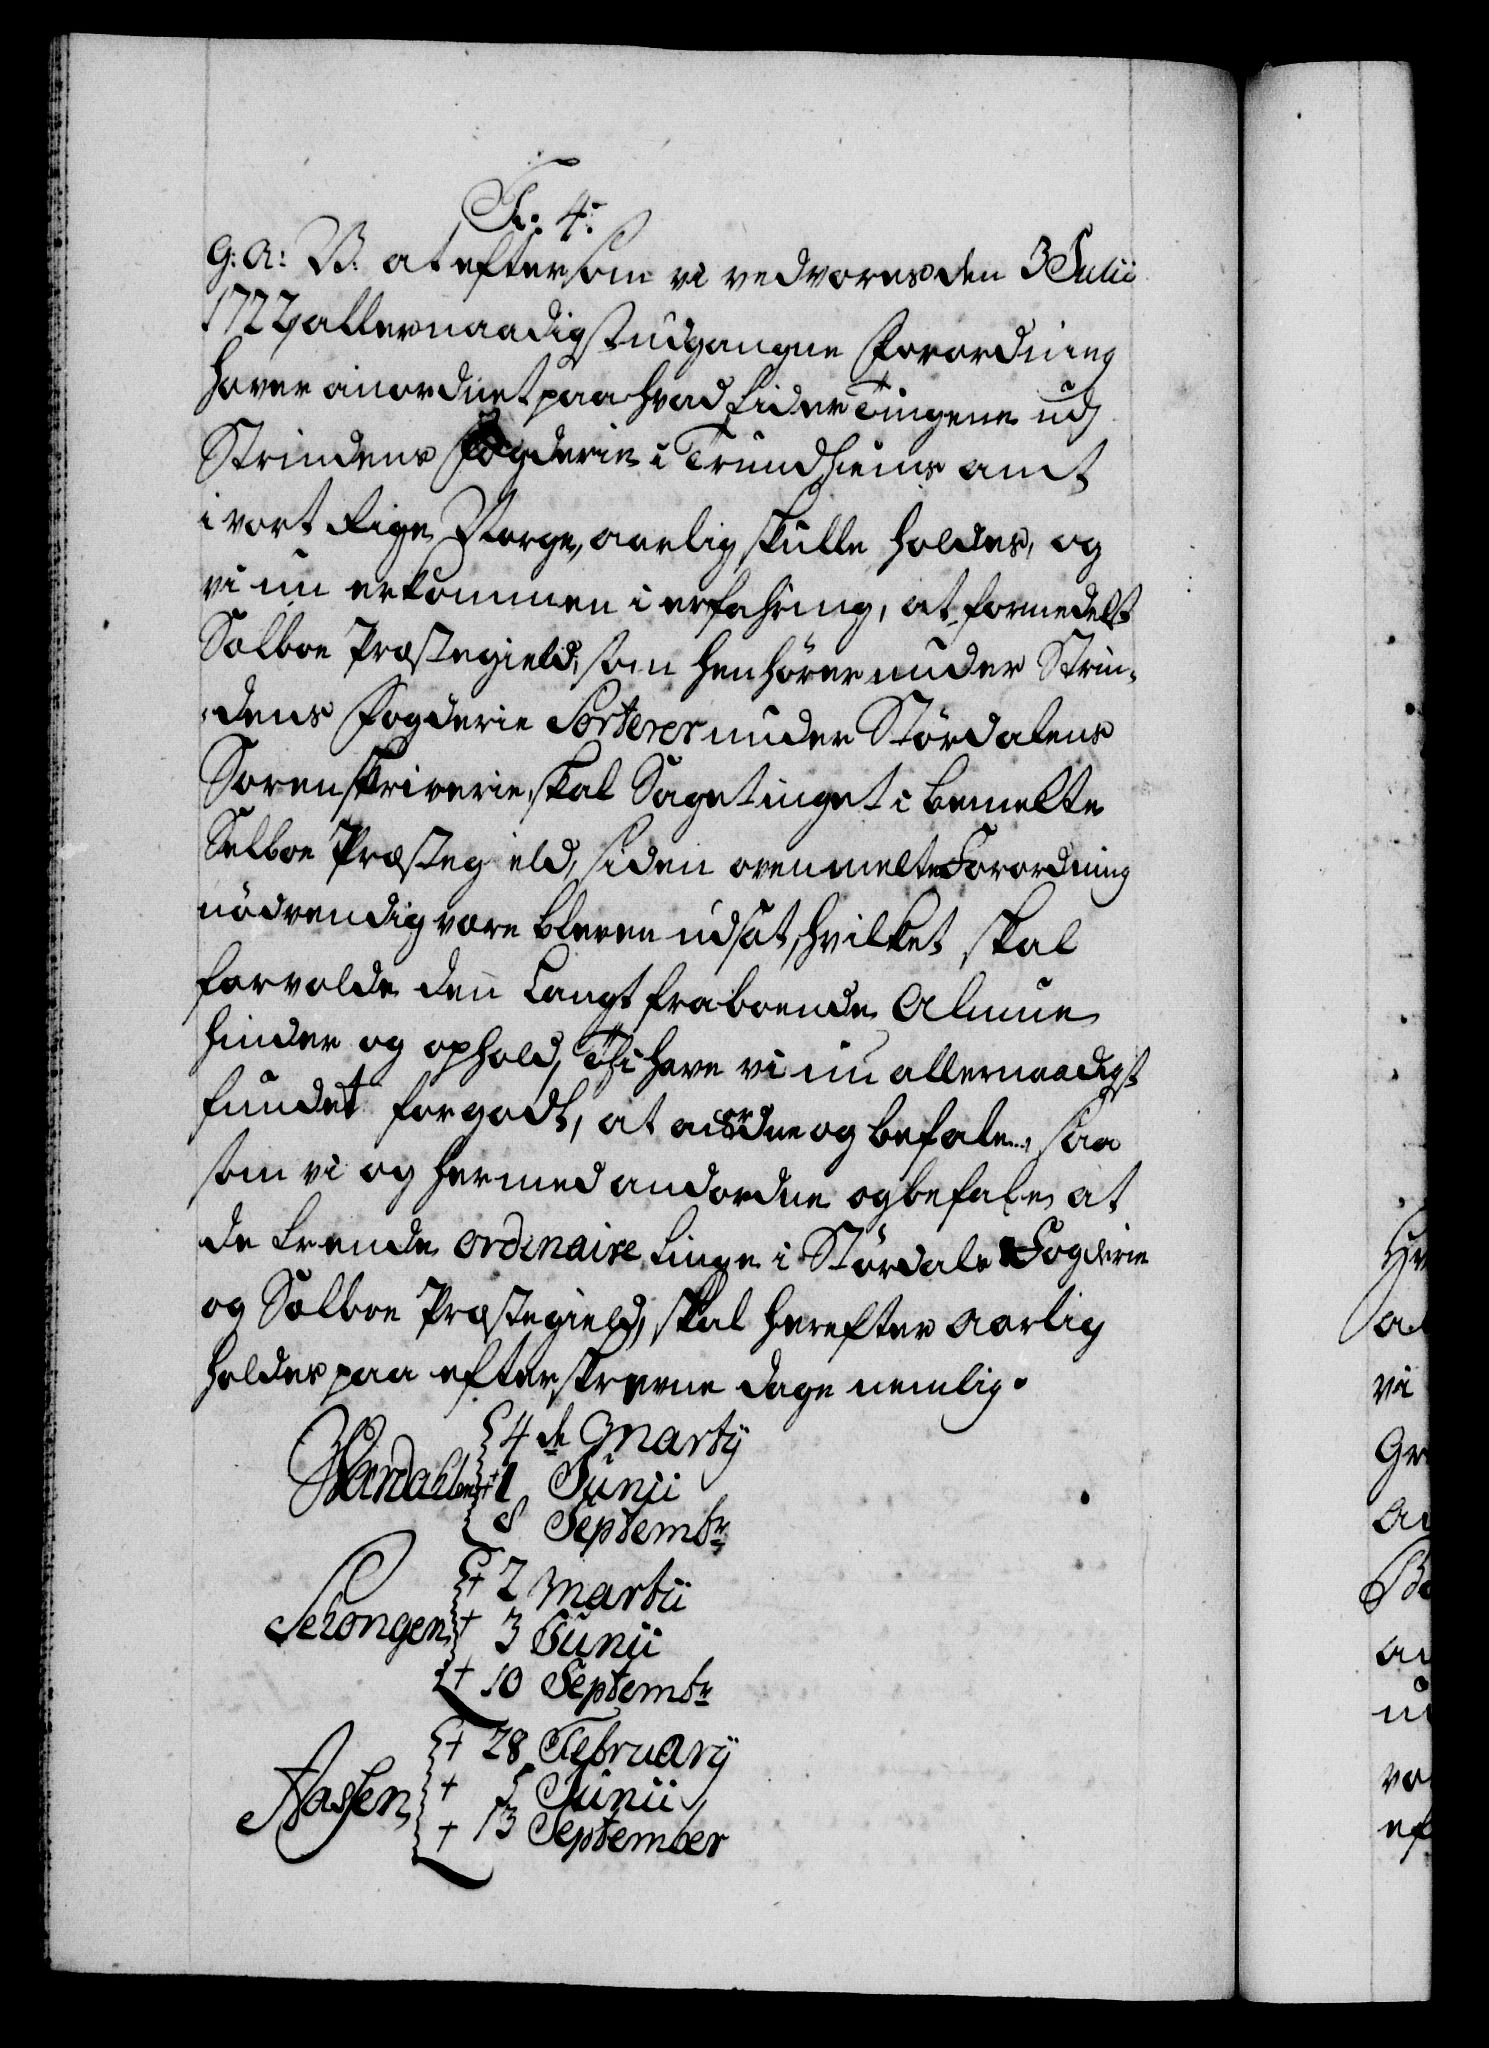 F. 4.
G: A: V: at eftersom vi ved vores den 3 Julii
1727 allernaadigst udgangne Forordning
haver anordnet paa hvad tider Tingene udj
Strindens Fogderie i Trundhiems amt
i vort Rige Norge, aarlig skulle holdes, og
vi nu er kommen i erfahring, at formedelst
Selboe Præstegield, som henhører under Strin-
dens Fogderie Sorterer under Stördalens
Sorenskriverie, skal Sagetinget i bemelte
Selboe Præstegield, siden ovenmelte Forordning
nödvendig være bleven udsat, hvilket skal
forvolde den langt fraboende Almue
hinder og ophold, Thi have vi nu allernaadigst
fundet for godt, at anordne og befale, saa
som vi og hermed andordne og befale, at
de trende ordinaire tinge i Stördals Fogderie
og Selboe Præstegield, skal herefter aarlig
holdes paa efterskrevne dage nemlig.
4 de Martij
1 Junii
8 Septembr
2 Martii
3 Junii
10 Septembr
28 February
5 Junii
13 September